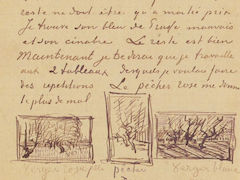 reste ne doit être qu'à moitié prix
Je trouve son bleu de Prusse mauvais
et son cinabre. Le reste est bien
Maintenant je te dirai que je travaille
aux 2 tableaux desquels je voulais faire
des repetitions Le pêcher rose me donne
le plus de mal
verger
pêcher
Verger blanc